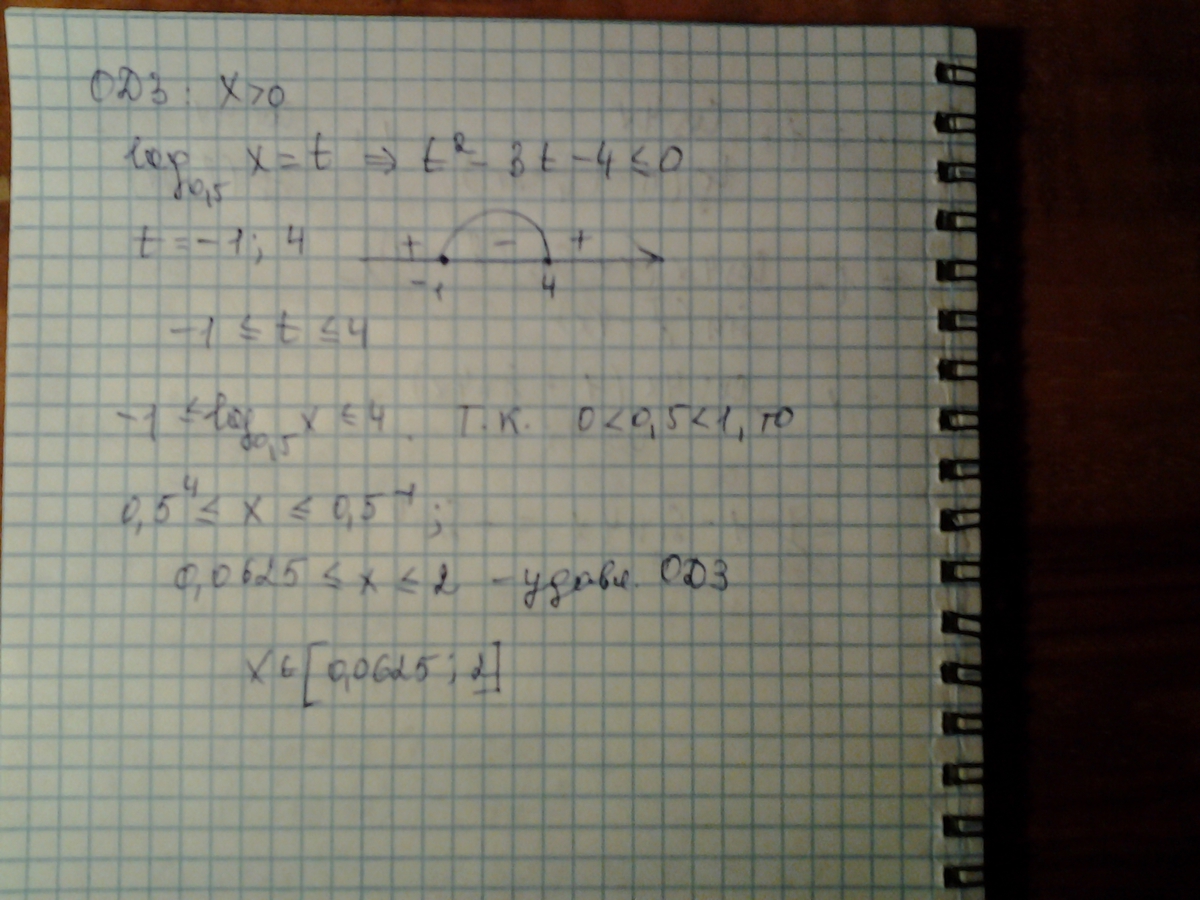 ОДЗ: x>0
log₀,₅ x = t ⇒ t² - 3t - 4 ≤ 0
t = -1; 4 + - +
-1 4
-1 ≤ t ≤ 4
-1 ≤ log₀,₅ x ≤ 4. Т.К. 0<0,5<1, то
0,5⁴ ≤ x ≤ 0,5⁻¹;
0,0625 ≤ x ≤ 2 - удовл. ОДЗ
x ∈ [0,0625; 2]